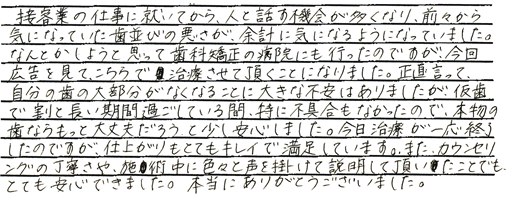 接客業の仕事に就いてから、人と話す機会が多くなり、前々から
気になっていた歯並びの悪さが、余計に気になるようになっていました。
なんとかしようと思って歯科矯正の病院にも行ったのですが、今回
広告を見て、こちらで治療させて頂くことになりました。正直言って、
自分の歯の大部分がなくなることに大きな不安はありましたが、仮歯
で割と長い期間過ごしている間、特に不具合もなかったので、本物の
歯ならもっと大丈夫だろうと少し安心しました。今日治療が一応終了
したのですが、仕上がりもとてもキレイで満足しています。また、カウンセリ
ングの丁寧さや、施術中に色々と声を掛けて説明して頂いたことでも、
とても安心できました。本当にありがとうございました。